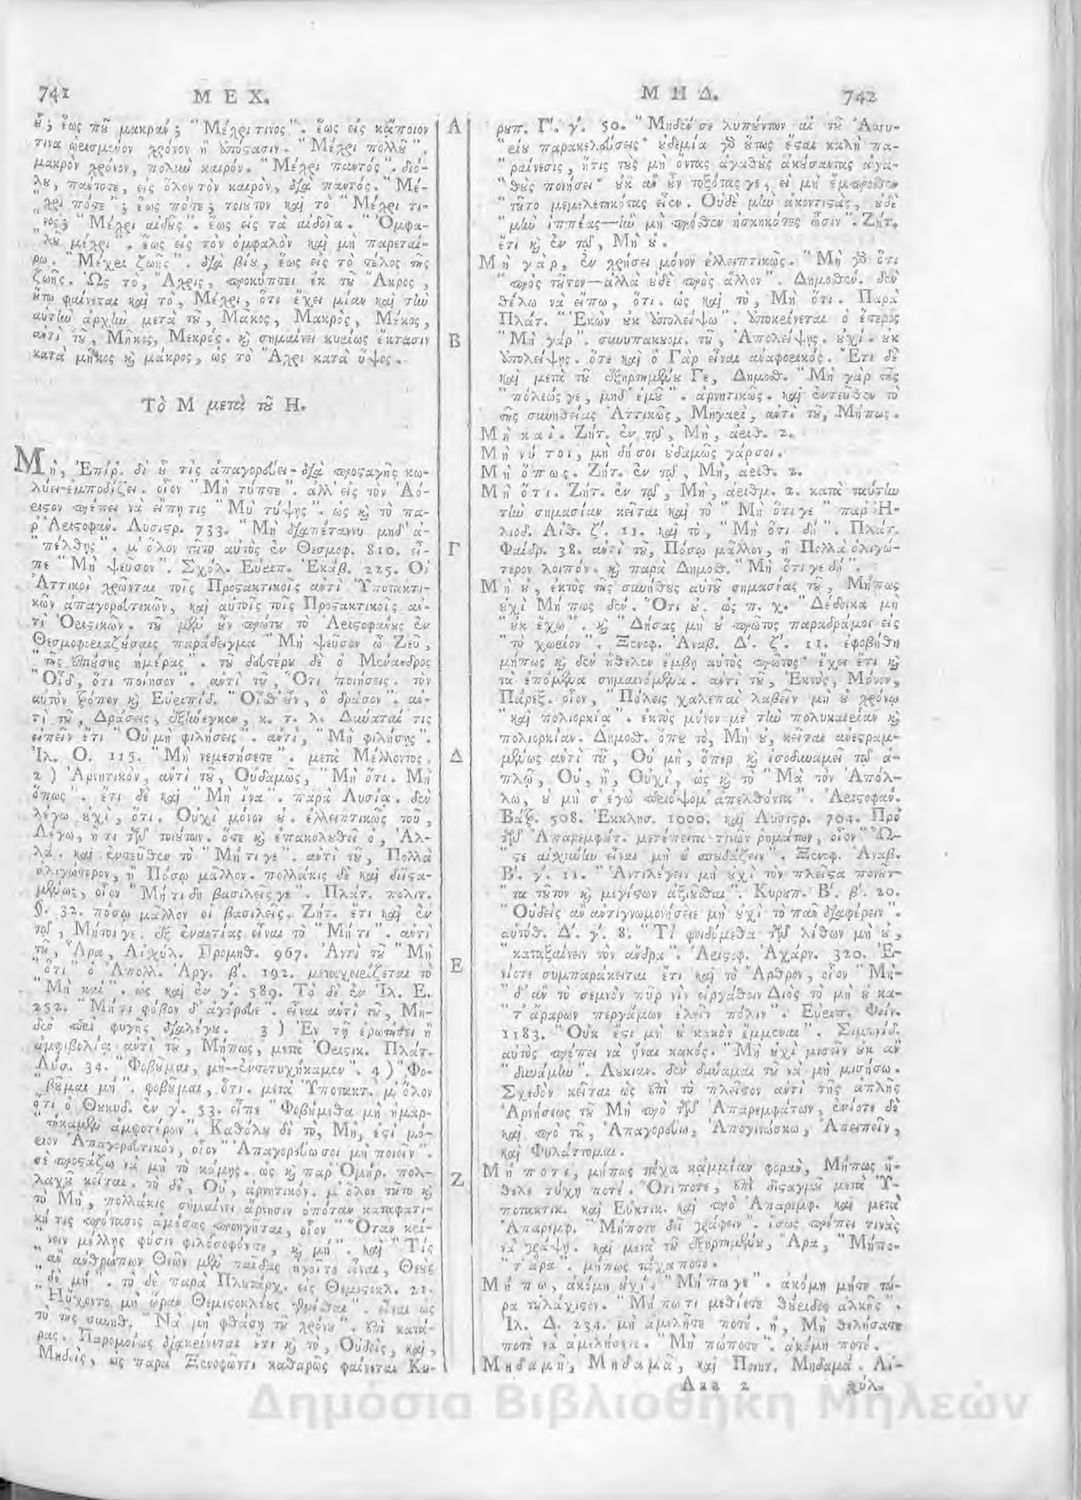 741 ΜΕΧ.
ȣ; ἕως πȣ μακραν; "Μέχρι τινος". ἕως εἰς κάποιον
τινα ὡρισμένον χρόνον ἢ ὑπόστασιν. "Μέχρι πολλȣ".
μακρὸν χρόνον, πολὺν καιρόν. "Μέχρι παντός". διό-
λȣ, πάντοτε, εἰς ὅλον τὸν καιρὸν, διὰ παντός. "Μέ-
"χρι πότε"; ἕως πότε; τοιȣτον καὶ τὸ "Μέχρι τι-
"νος; "Μέχρι αἰδȣς". ἕως εἰς τὰ αἰδοῖα. "Ὀμφα-
"λȣ μέχρι". ἕως εἰς τὸν ὀμφαλὸν καὶ μὴ παρεται-
ρω. "Μέχρι ζωῆς". διὰ βίȣ, ἕως εἰς τὸ τέλος τῆς
ζωῆς. Ὡς τὸ, Ἄχρις, προκύπτει ἐκ τȣ Ἄκρος,
ȣτω φαίνεται καὶ τὸ, Μέχρι, ὅτι ἔχει μίαν καὶ τὴν
αὐτὴν ἀρχὴν μετὰ τȣ, Μᾶκος, Μακρὸς, Μέκος,
ἀντὶ τȣ, Μῆκος, Μεκρός. καὶ σημαίνει κυρίως ἔκτασιν
κατὰ μῆκος καὶ μάκρος, ὡς τὸ Ἄχρι κατὰ ὕψος.
Τὸ Μ μετὰ τȣ Η.
Μὴ, Ἐπίρ. δι' ȣ τις ἀπαγορεύει-διὰ προσταγῆς κω-
λύει-ἐμποδίζει. οἷον "Μὴ τύπτε". ἀλλ' εἰς τὸν Ἀό-
ριστον πρέπει νὰ εἴπῃ τις "Μὴ τύψῃς". ὡς καὶ τὸ πα-
ρ' Ἀριστοφάν. Λυσιστρ. 733. "Μὴ διαπέταννυ μηδ' ἀ-
"πέλθῃς". μ' ὅλον τȣτο αὐτὸς ἐν Θεσμοφ. 810. εἶ-
πε "Μὴ ψεῦσον". Σχόλ. Εὐριπ. Ἑκάβ. 225. Οἱ
Ἀττικοὶ χρῶνται τοῖς Προστακτικοῖς ἀντὶ Ὑποτακτι-
κῶν ἀπαγορευτικῶν, καὶ αὐτοῖς τοῖς Προστακτικοῖς ἀν-
τὶ Ὁριστικῶν. τȣ μὲν ȣν πρώτȣ τὸ Ἀριστοφάνȣς ἐν
Θεσμοφοριαζȣσαις παράδειγμα "Μὴ ψεῦσον ὦ Ζεῦ,
"τῆς ἐπιȣσης ἡμέρας". τȣ δευτέρȣ δὲ ὁ Μένανδρος
"Οἶδ', ὅτι ποίησον". ἀντὶ τȣ, Ὅτι ποιήσεις. τὸν
αὐτὸν τρόπον καὶ Εὐριπίδ. "Οἶσθ' ȣν, ὃ δρᾶσον". ἀν-
τὶ τȣ, Δράσεις, ἐξένεγκεν, κ. τ. λ. Δύναταί τις
εἰπεῖν ἔτι "Οὐ μὴ φιλήσεις". ἀντὶ, "Μὴ φιλήσῃς".
Ἰλ. Ο. 115. "Μὴ νεμεσήσετε". μετὰ Μέλλοντος.
2 ) Ἀρνητικὸν, ἀντὶ τȣ, Οὐδαμῶς, "Μὴ ὅτι. Μὴ
ὅπως". ἔτι δὲ καὶ "Μὴ ἵνα". παρὰ Λυσίᾳ. δὲν
λέγω ȣχὶ, ὅτι. Οὐχὶ μόνον ȣ. ἐλλειπτικῶς τοῦ,
Λέγω, ἤ τι τῶν τοιȣτων. ὅτε καὶ ἐπακολȣθεῖ ὁ, Ἀλ-
λά. καὶ ἐντεῦθεν τὸ "Μή τί γε". ἀντὶ τȣ, Πολλὰ
ὀλιγώτερον, ἢ Πόσῳ μᾶλλον. πολλάκις δὲ καὶ διιστα-
μένως, οἷον "Μή τι δὴ βασιλεῖς γε". Πλάτ. πολιτ.
θ. 32. πόσῳ μᾶλλον οἱ βασιλεῖς. Ζήτ. ἔτι καὶ ἐν
τῷ, Μήτοιγε. ἐξ ἐναντίας εἶναι τὸ "Μή τι". ἀντὶ
τȣ, Ἄρα, Αἰσχύλ. Προμηθ. 967. Ἀντὶ τȣ "Μὴ
"ὅτι" ὁ Ἀπολλ. Ἀργ. β'. 192. μεταχειρίζεται τὸ
"Μὴ καί". ὡς καὶ ἐν γ'. 589. Τὸ δὲ ἐν Ἰλ. Ε.
252. "Μή τι φόβον δ' ἀγόρευε". εἶναι ἀντὶ τȣ, Μη-
δὲν περὶ φυγῆς διαλέγȣ. 3 ) Ἐν τῇ ἐρωτήσει ἢ
ἀμφιβολίᾳ ἀντὶ τȣ, Μήπως, μετὰ Ὁριστικ. Πλάτ.
Λύσ. 34. "Φοβȣμαι, μὴ--ἐντετυχήκαμεν". 4 ) "Φο-
"βȣμαι μή". φοβȣμαι, ὅτι. μετὰ Ὑποτακτ. μ' ὅλον
ὅτι ὁ Θȣκυδ. ἐν γ'. 53. εἶπε "Φοβȣμεθα μὴ ἡμαρ-
"τήκαμεν ἀμφοτέρων". Καθόλȣ δὲ τὸ, Μὴ, ἐστὶ μό-
ριον Ἀπαγορευτικὸν, οἷον "Ἀπαγορεύω σοι μὴ ποιεῖν".
σὲ προστάζω νὰ μὴ τὸ κάμῃς. ὡς καὶ παρ' Ὁμήρ. πολ-
λαχȣ κεῖται. τὸ δὲ, Οὐ, ἀρνητικόν. μ' ὅλον τȣτο καὶ
τὸ Μὴ, πολλάκις σημαίνει ἄρνησιν ὁπόταν καταφατι-
κή τις πρότασις ἀμέσως προηγῆται, οἷον "Ὅταν κρί-
"νειν μέλλῃς φύσιν φιλόσοφόν τε, καὶ μή". καὶ "Τίς
"ἂν ἀνθρώπων Θεῶν μὲν παῖδας ἡγοῖτο εἶναι, Θεȣς
"δὲ μή". τὸ δὲ παρὰ Πλȣτάρχ. εἰς Θεμιστοκλ. 21.
"Ηὔχοντο μὴ ὥραν Θεμιστοκλέȣς γενέσθαι". εἶναι ὡς
τὸ τῆς συνηθ. "Νὰ μὴ φθάσῃ τȣ χρόνȣ". ἐπὶ κατά-
ρας. Παρομοίως διακρίνεται ἔτι καὶ τὸ, Οὐδεὶς, καὶ,
Μηδεὶς, ὡς παρὰ Ξενοφῶντι καθαρῶς φαίνεται Κυ-
Α
Β
Γ
Δ
Ε
Ζ
ΜΗΔ. 742
ρȣπ. Γ'. γ'. 50. "Μηδέν σε λυπȣντων αἱ τȣ Ἀσσυ-
"ρίȣ παρακελεύσεις· ȣδεμία γὰρ ȣτως ἔσται καλὴ πα-
"ραίνεσις, ἥτις τȣς μὴ ὄντας ἀγαθȣς ἀκȣσαντας ἀγα-
"θȣς ποιήσει· ȣκ ἂν ȣν τοξότας γε, εἰ μὴ ἔμπροσθεν
"τȣτο μεμελετηκότας εἶεν. Οὐδὲ μὴν ἀκοντιστὰς, ȣδὲ
"μὴν ἱππέας--ἵν μὴ πρόσθεν ἠσκηκότες ὦσιν". Ζήτ.
ἔτι καὶ ἐν τῷ, Μὴ ȣ.
Μὴ γὰρ, ἐν χρήσει μόνον ἐλλειπτικῶς. "Μὴ γὰρ ὅτι
"πρὸς τȣτον--ἀλλὰ ȣδὲ πρὸς ἄλλον". Δημοσθέν. δὲν
θέλω νὰ εἴπω, ὅτι. ὡς καὶ τὸ, Μὴ ὅτι. Παρὰ
Πλάτ. "Ἑκὼν ȣκ ἀπολείψω". ὑποκρίνεται ὁ ἕτερος
"Μὴ γάρ". συνυπακȣομ. τȣ, Ἀπολείψῃς. ȣχὶ. ȣκ
ἀπολείψῃς. ὅτε καὶ ὁ Γὰρ εἶναι ἀναφορικός. Ἔτι δὲ
καὶ μετὰ τȣ ἐξηρτημένȣ Γε, Δημοσθ. "Μὴ γὰρ τῆς
"πόλεώς γε, μηδ' ἐμȣ". ἀρνητικῶς. καὶ ἐντεῦθεν τὸ
τῆς συνηθείας Ἀττικῶς, Μηγαρὶ, ἀντὶ τȣ, Μήπως.
Μὴ καὶ. Ζήτ. ἐν τῷ, Μὴ, ἀριθ. 2.
Μή νύ τοι, μὴ δή σοι ȣδαμῶς γάρσοι.
Μὴ ὅπως. Ζήτ. ἐν τῷ, Μὴ, ἀριθ. 2.
Μὴ ὅτι. Ζήτ. ἐν τῷ, Μὴ, ἀριθμ. 2. κατὰ ταύτην
τὴν σημασίαν κεῖται καὶ τὸ "Μὴ ὅτι γε" παρ' Ἡ-
λιοδ. Αἰθ. ζ'. 11. καὶ τὸ, "Μὴ ὅτι δή". Πλάτ.
Φαίδρ. 38. ἀντὶ τȣ, Πόσῳ μᾶλλον, ἢ Πολλὰ ὀλιγώ-
τερον λοιπόν. καὶ παρὰ Δημοσθ. "Μὴ ὅτι γε δή".
Μὴ ȣ, ἐκτὸς τῆς συνήθȣς αὐτȣ σημασίας τȣ, Μήπως
ȣχὶ Μήπως δέν. Ὅτι ȣ. ὡς π. χ. "Δέδοικα μὴ
"ȣκ ἔχω". καὶ "Δήσας μὴ ȣ πρῶτος παραδράμοι εἰς
"τὸ χωρίον". Ξενοφ. Ἀναβ. Δ'. ζ'. 11. ἐφοβήθη
μήπως καὶ δὲν ἤθελεν ἔμβῃ αὐτὸς πρῶτος· ἔχει ἔτι καὶ
τὰ ἑπόμενα σημαινόμενα. ἀντὶ τȣ, Ἐκτὸς, Μόνον,
Πάρεξ. οἷον, "Πόλεις χαλεπαὶ λαβεῖν μὴ ȣ χρόνῳ
"καὶ πολιορκίᾳ". ἐκτὸς μόνον μὲ τὴν πολυκαιρίαν καὶ
πολιορκίαν. Δημοσθ. ὅπȣ τὸ, Μὴ ȣ, κεῖται ἀνεστραμ-
μένως ἀντὶ τȣ, Οὐ μὴ, ὅπερ καὶ ἰσοδυναμεῖ τῷ ἁ-
πλῷ, Οὐ, ἢ, Οὐχὶ, ὡς καὶ τὸ "Μὰ τὸν Ἀπόλ-
λω, ȣ μή σ' ἐγὼ περιόψομ' ἀπελθόντα". Ἀριστοφάν.
Βάτρ. 508. Ἐκκλησ. 1000. καὶ Λυσιστρ. 704. Πρὸ
τῶν Ἀπαρεμφάτ. μετέπειτα τινῶν ῥημάτων, οἷον "Ὥ-
"στε αἰσχύνην εἶναι μὴ ȣ σπȣδάζειν". Ξενοφ. Ἀναβ.
Β'. γ'. 11. "Ἀντιλέγειν μὴ ȣχὶ τὸν πλεῖστα πονȣν-
"τα τȣτον καὶ μεγίστων ἀξιȣσθαι". Κυροπ. Β'. β'. 20.
"Οὐδεὶς ἂν ἀντιγνωμονήσειε μὴ ȣχὶ τὸ πᾶν διαφέρειν".
αὐτόθ. Δ'. γ'. 8. "Τί φειδόμεθα τῶν λίθων μὴ ȣ,
"καταξαίνειν τὸν ἄνδρα". Ἀριστοφ. Ἀχάρν. 320. Ἐ-
νίοτε συμπαράκειται ἔτι καὶ τὸ Ἄρθρον, οἷον "Μη-
"δ' ἂν τὸ σεμνὸν πῦρ νιν εἰργάθειν Διὸς τὸ μὴ ȣ κα-
"τ' ἄκρων περγάμων ἑλεῖν πόλιν". Εὐριπ. Φοίν.
1183. "Οὐκ ἔστι μὴ ȣ κακὸν ἔμμεναι". Σιμωνίδ.
αὐτὸς πρέπει νὰ ἦναι κακός. "Μὴ ȣχὶ μισεῖν ȣκ ἂν
"δυναίμην". Λȣκιαν. δὲν δύναμαι τȣ νὰ μὴ μισήσω.
Σχεδὸν κεῖται ὡς ἐπὶ τὸ πλεῖστον ἀντὶ τῆς ἁπλῆς
Ἀρνήσεως τȣ Μὴ πρὸ τῶν Ἀπαρεμφάτων, ἐνίοτε δὲ
καὶ πρὸ τȣ, Ἀπαγορεύω, Ἀπογινώσκω, Ἀπειπεῖν,
καὶ Φυλάττομαι.
Μήποτε, μήπως τάχα κάμμίαν φορὰν, Μήπως ἤ-
θελε τύχῃ ποτέ. Ὅτι ποτὲ, ἐπὶ δισταγμȣ μετὰ Ὑ-
ποτακτικ. καὶ Εὐκτικ. καὶ πρὸ Ἀπαρεμφ. καὶ μετὰ
Ἀπαρεμφ. "Μήποτε δεῖ γράφειν". ἴσως πρέπει τινὰς
νὰ γράψῃ. καὶ μετὰ τȣ ἐξηρτημένȣ, Ἄρα, "Μήπο-
"τ' ἄρα". μήπως τάχα ποτε.
Μήπω, ἀκόμη ȣχί. "Μήπω γε". ἀκόμη μήτε τώ-
ρα τȣλάχιστον. "Μή πώ τι μεθίετε θȣριδος ἀλκῆς".
Ἰλ. Δ. 234. μὴ ἀμελῆτε ποτέ. ἢ, Μὴ θελήσατε
ποτὲ νὰ ἀμελήσετε. "Μὴ πώποτε". ἀκόμη ποτέ.
Μηδαμῆ, Μηδαμᾶ, καὶ Ποιητ. Μηδαμά. Αἰ-
Ααα 2 σχύλ.
Δημόσια Βιβλιοθήκη Μηλεών